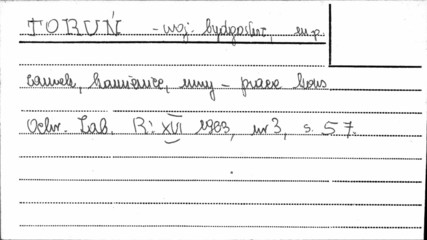 TORUŃ - woj. bydgoskie, m.p.
zamek, kamienice, mury - prace kons.
Ochr. Zab. R: XVI 1963, nr 3, s. 57.